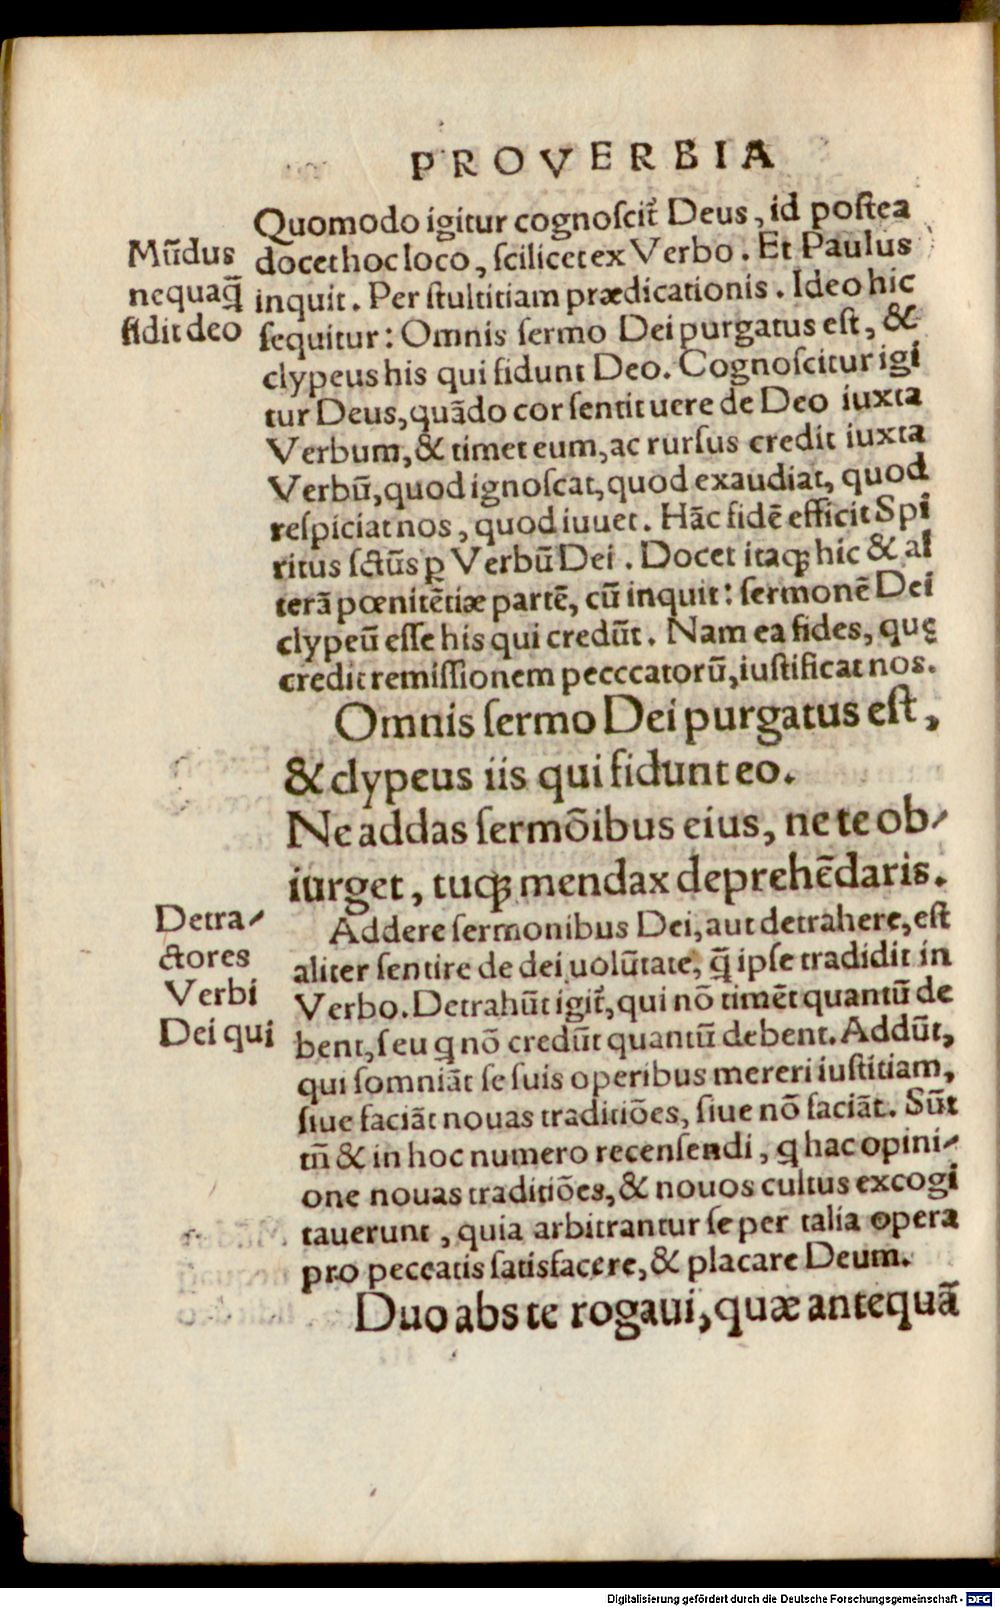 PROVERBIA
Quomodo igitur cognoſcit᷑ Deus, id poſtea
docet hoc loco, ſcilicet ex Verbo. Et Paulus
inquit. Per ſtultitiam prædicationis. Ideo hic
ſequitur: Omnis ſermo Dei purgatus eſt, &
clypeus his qui fidunt Deo. Cognoſcitur igi
tur Deus, quãdo cor ſentit uere de Deo iuxta
Verbum, & timet eum, ac rurſus credit iuxta
Verbũ, quod ignoſcat, quod exaudiat, quod
reſpiciat nos, quod iuuet. Hãc fidẽ efficit Spi
ritus ſctũs ꝑ Verbũ Dei. Docet itaqꝫ hic & al
terã pœnitẽtiæ partẽ, cũ inquit: ſermonẽ Dei
clypeũ eſſe his qui credũt. Nam ea fides, quę
credit remiſſionem pecccatorũ, iuſtificat nos.
Omnis ſermo Dei purgatus eſt,
& clypeus iis qui fidunt eo.
Ne addas ſermõibus eius, ne te ob-
iurget, tuqꝫ mendax deprehẽdaris.
Addere ſermonibus Dei, aut detrahere, eſt
aliter ſentire de dei uolũtate, q̃ ipſe tradidit in
Verbo. Detrahũt igit᷑, qui nõ timẽt quantũ de
bent, ſeu q nõ credũt quantũ debent. Addũt,
qui ſomniãt ſe ſuis operibus mereri iuſtitiam,
ſiue faciãt nouas traditiões, ſiue nõ faciãt. Sũt
tñ & in hoc numero recenſendi, q hac opini-
one nouas traditiões, & nouos cultus excogi
tauerunt, quia arbitrantur ſe per talia opera
pro peccatis ſatisfacere, & placare Deum.
Duo abs te rogaui, quæ antequã
Mũdus
nequaq̃
fidit deo
Detra-
ctores
Verbi
Dei qui
Digitalisierung gefördert durch die Deutsche Forschungsgemeinschaft - DFG